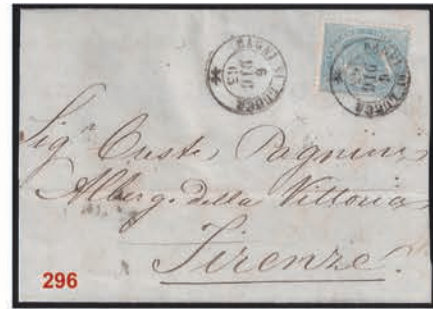 BAGNI DI LUCCA
6
DIC
65
BAGNI DI LUCCA
6
DIC
65
Sig.r Custe Pagnini
Albergo della Vittoria
Firenze.
296